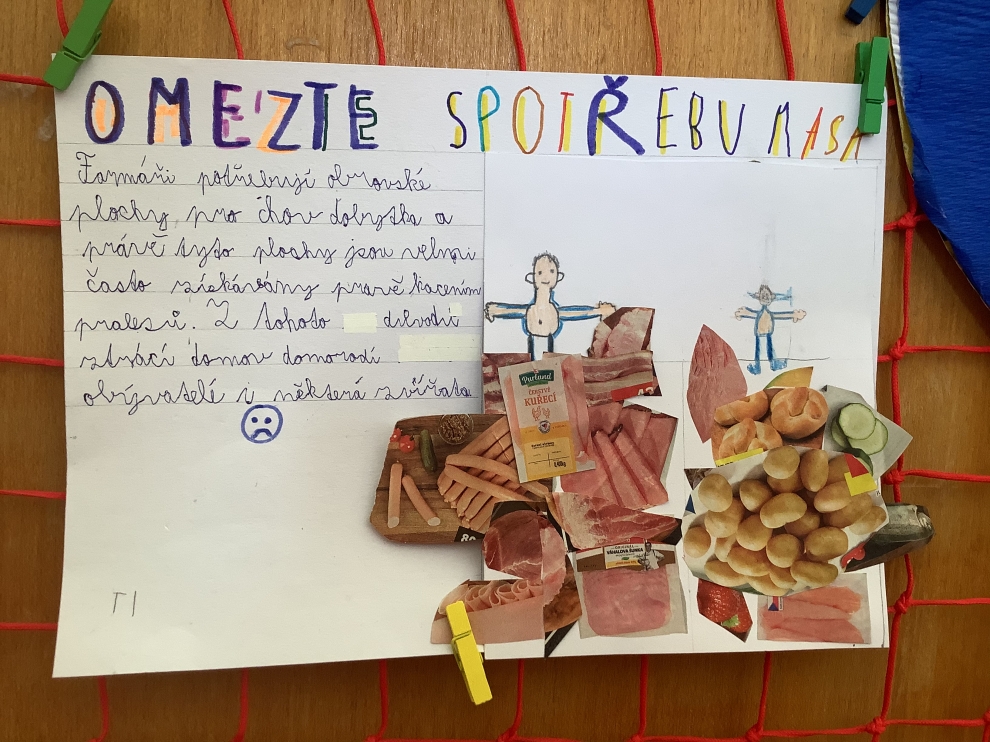 OMEZTE SPOTŘEBU MASA
Farmáři potřebují obrovské
plochy pro chov dobytka a
právě tyto plochy jsou velmi
často získávány pravě kacením
pralesů. Z tohoto důvodů
ztrácí domov domorodí
obývatelé i některá zvířata.
Vocílund
ČERSTVÉ
KUŘECÍ
VÁHALOVA ŠUNKA
TI